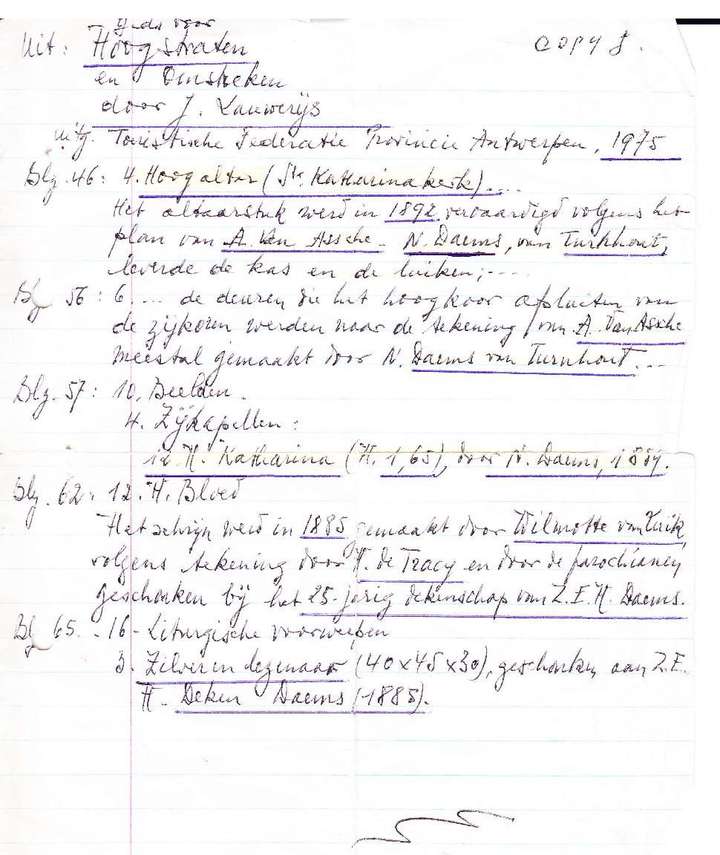 Gids voor
Uit: Hoogstraten copy 8.
en Omstreken
door J. Lauwerijs
uitg. Toeristische Federatie Provincie Antwerpen, 1975
Blz. 46: 4. Hoogaltar (St. Katharinakerk)....
Het altaarstuk werd in 1892 vervaardigd volgens het
plan van A. Van Assche - N. Daems, van Turnhout,
leverde de kas en de luiken;-...
Blz 56: 6.... de deuren die het hoogkoor afsluiten van
de zijkoren werden naar de tekening van A. Van Assche
meestal gemaakt door N. Daems van Turnhout...
Blz. 57: 10. Beelden.
4. Zijkapellen:
12. H. Katharina (H. 1,65), door N. Daems,
Blz. 62: 12. H. Bloed
Het schrijn werd in 1885 gemaakt door Wilmotte van Luik,
volgens tekening door H. de Tracy en door de parochianen
geschonken bij het 25-jarig dekenschap van Z.E.H. Daems.
Blz 65. - 16 - Liturgische voorwerpen
3. Zilveren (40x45x30), geschonken aan Z.E.
H. Deken Daems (1885).